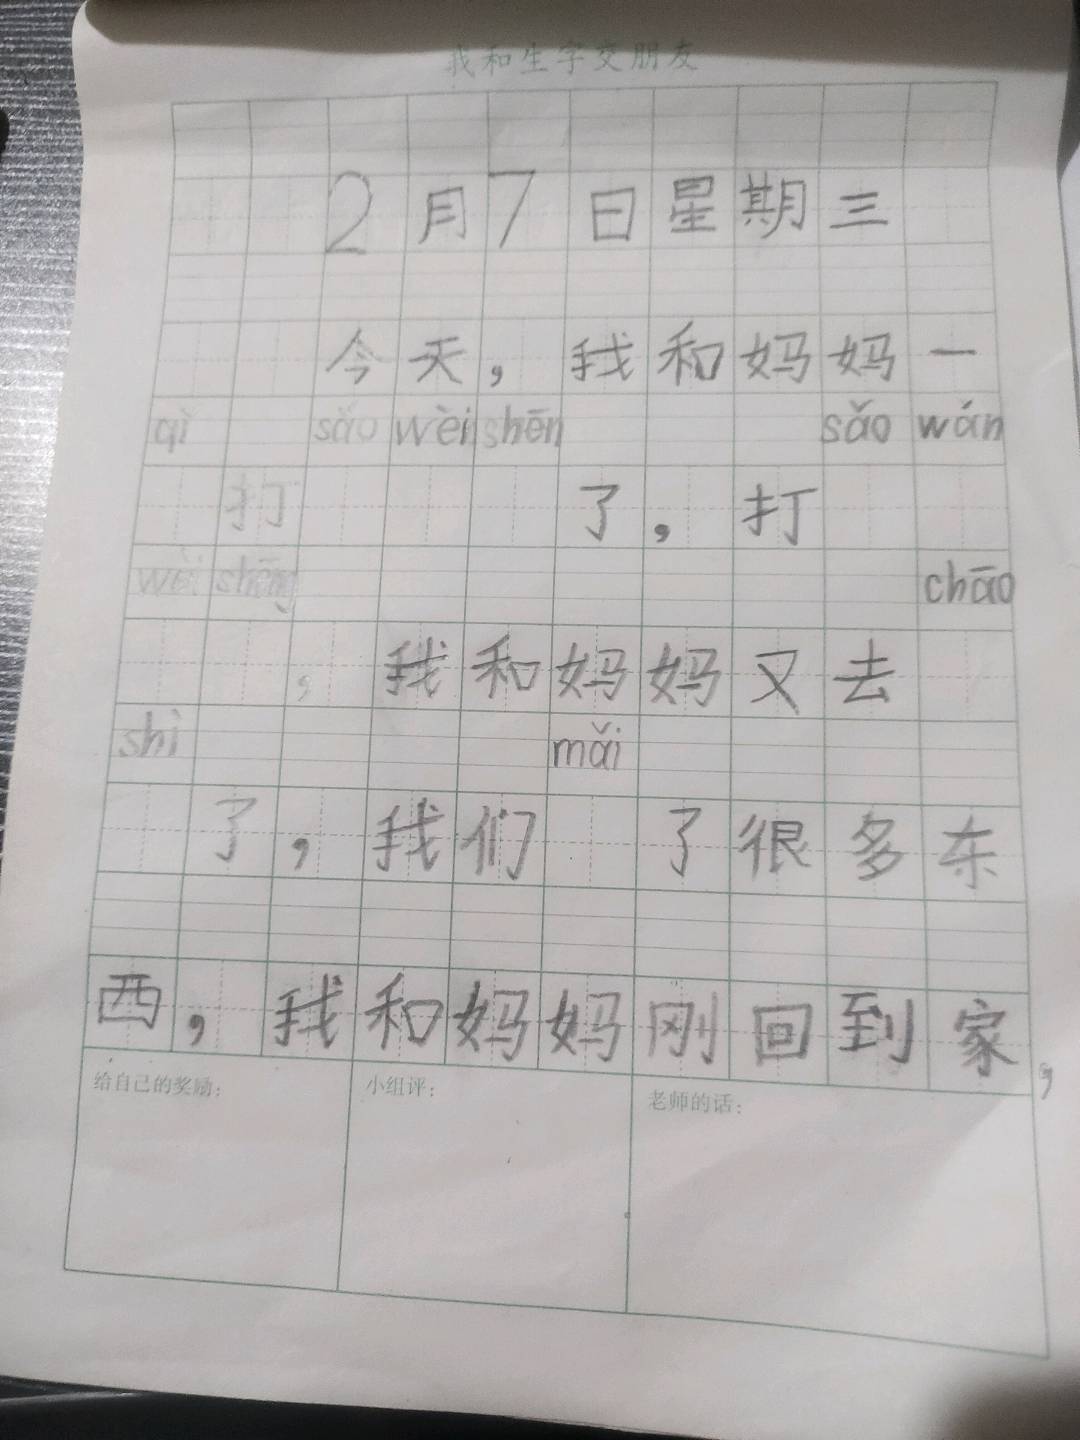 我和生字交朋友
2月7日星期三
今天，我和妈妈一
qì sǎo wèi shēn sǎo wán
打 了，打
wèi shēng chāo
， 我和妈妈又去
shì mǎi
了，我们 了很多东
西，我和妈妈刚回到家，
给自己的奖励： 小组评： 老师的话：